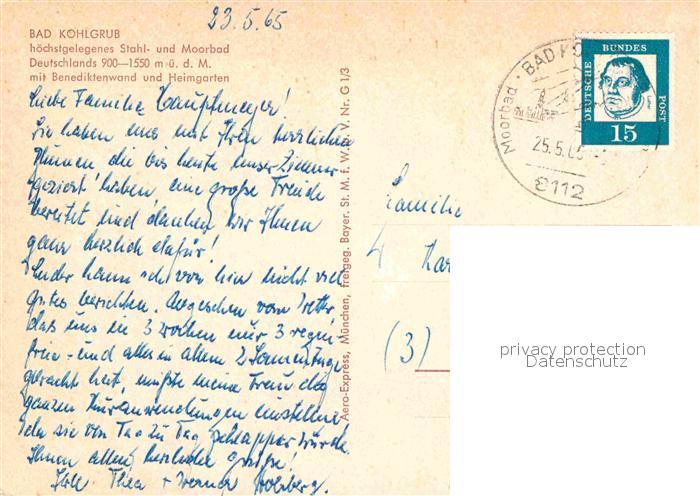 23.5.65
BAD KOHLGRUB
höchstgelegenes Stahl- und Moorbad
Deutschlands 900—1550 m ü. d. M.
mit Benediktenwand und Heimgarten
Liebe Familie
Sie haben uns mit Ihren herrlichen
Blumen die bis heute unser Zimmer
geziert haben eine große Freude
bereitet und danken wir Ihnen
ganz herzlich dafür!
Leider kann ich von hier nicht viel
gutes berichten. Abgesehen vom Wetter
das uns in 3 Wochen nur 3 regen-
freie - und alles in allem 2 Sonnentage
gebracht hat, mußte meine Frau die
ganzen Kuranwendungen einstellen
da sie von Tag zu Tag schlapper wurde.
Ihnen allen herzliche Grüße!
Ihre Thea + Werner
Aero-Express, München, freigeg. Bayer. St. M. f. W. u. V. Nr. G 1/3
Familie
4 Kar
(3)
Moorbad · BAD KO
25.5.65
8112
DEUTSCHE BUNDES POST
15
privacy protection
Datenschutz